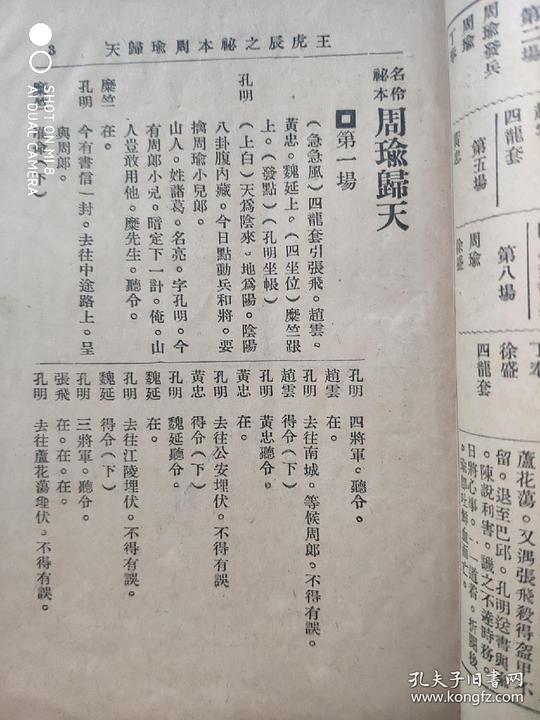 王虎辰之祕本周瑜歸天
3
名伶
祕本
周瑜歸天
第一場
（急急風）四龍套引張飛。趙雲。
黃忠。魏延上。（四坐位）糜竺跟
上。（發點）（孔明坐帳）
孔明
（上白）天爲陰來。地爲陽。陰陽
八卦腹內藏。今日點動兵和將。要
擒周瑜小兒郎。
山人。姓諸葛。名亮。字孔明。今
有周郎小兒。暗定下一計。俺。山
人豈敢用他。糜先生。聽令。
糜竺 在。
孔明 今有書信一封。去往中途路上。呈
與周郎。
孔明 四將軍。聽令。
趙雲 在。
孔明 去往南城。等候周郎。不得有誤。
趙雲 得令（下）
孔明 黃忠聽令。
黃忠 在。
孔明 去往公安埋伏。不得有誤。
黃忠 得令（下）
孔明 魏延聽令。
魏延 在。
孔明 去往江陵埋伏。不得有誤。
魏延 得令（下）
孔明 三將軍。聽令。
張飛 在。在。在。
孔明 去往蘆花蕩埋伏。不得有誤。
第二場
周瑜發兵
丁奉
四龍套
第五場
黃忠
周瑜
第八場
徐盛
丁奉
徐盛
四龍套
蘆花蕩。又遇張飛殺得盔甲不
留。退至巴邱。孔明送書與
。陳說利害。譏之不達時務。
SHOT ON MI 8
AI DUAL CAMERA
孔夫子旧书网
book.kongfz.com